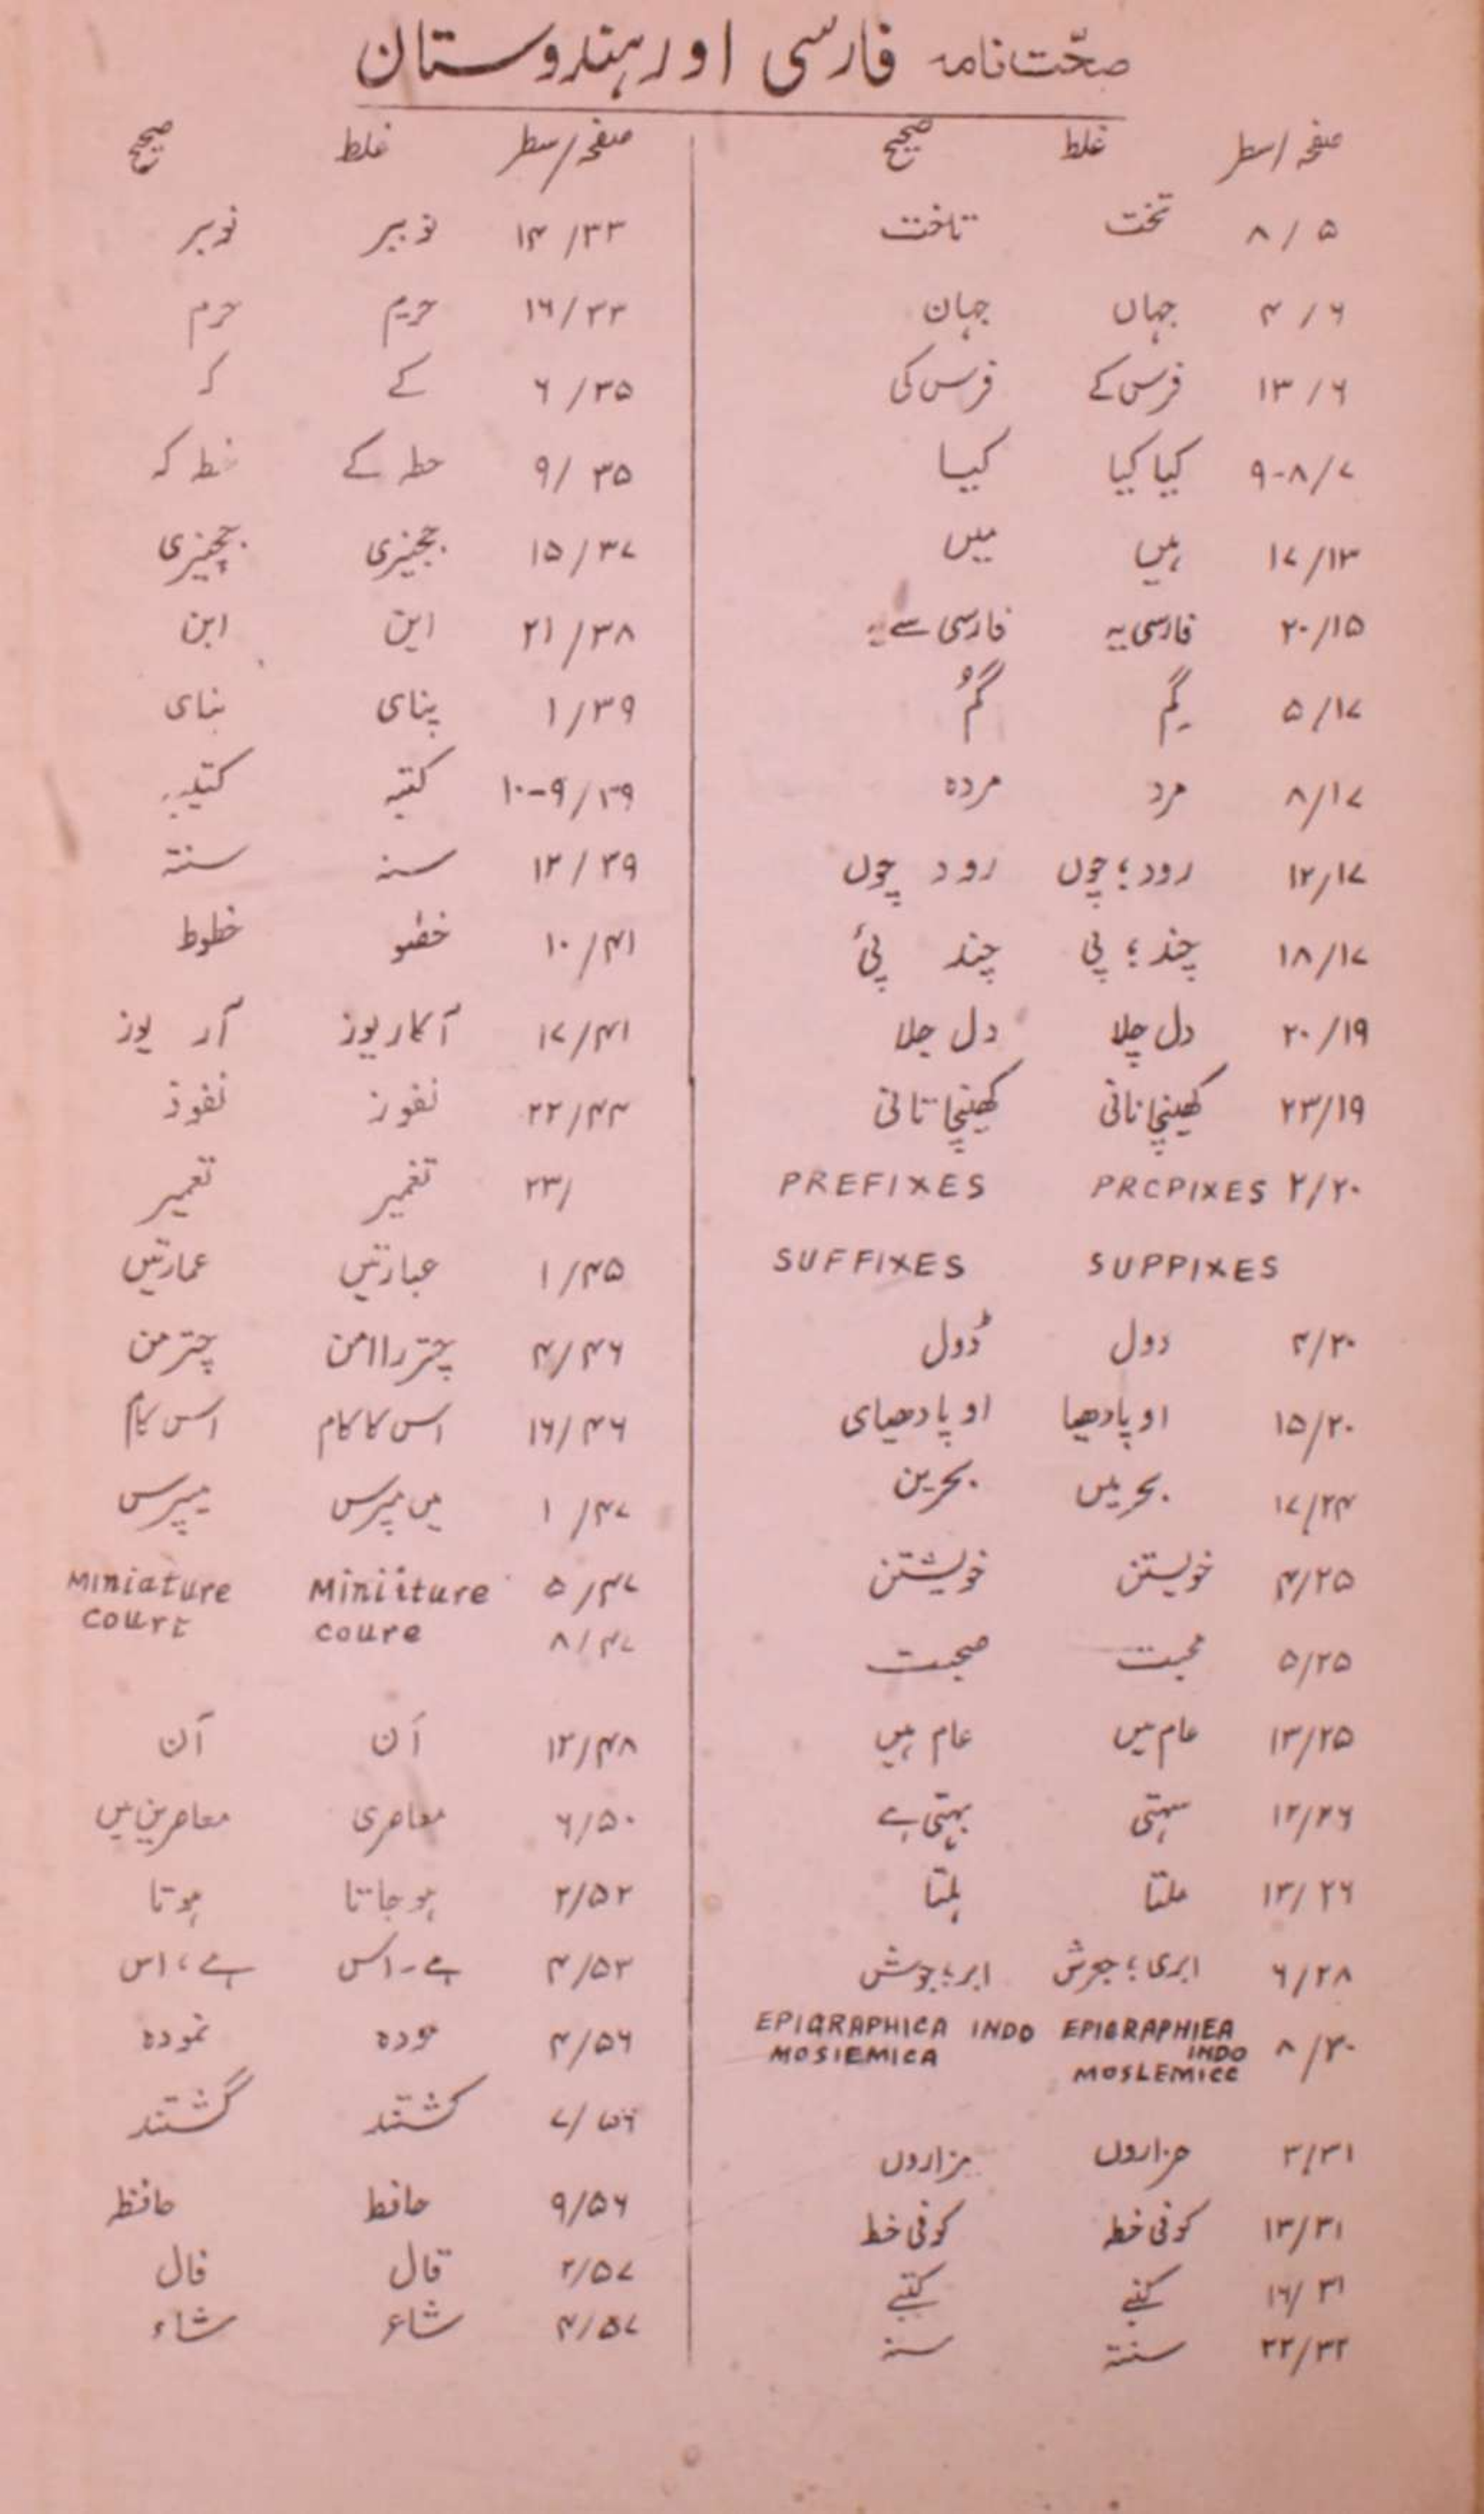 صحّت نامہ فارسی اور ہندوستان
صفحہ/سطر غلط صحیح
۵/۸ تخت تاخت
۶/۴ جہاں جہان
۶/۱۳ فرس کے فرس کی
۷/۸-۹ کیا کیا کیسا
۱۳/۱۷ ہیں میں
۱۵/۲۰ فارسی یہ فارسی سے یہ
۱۷/۵ گم گُم
۱۷/۸ مرد مردہ
۱۷/۱۲ رود؛ چوں رود چوں
۱۷/۱۸ چند؛ پی چند پئ
۱۹/۲۰ دل چلا دل جلا
۱۹/۲۳ کھینچا نانی کھینچا تانی
۲۰/۲ PRCPIXES PREFIXES
SUPPIXES SUFFIXES
۲۰/۴ دول ڈول
۲۰/۱۵ اوپادھیا اوپادھیای
۲۴/۱۷ بحریں بحرین
۲۵/۴ خویستن خویشتن
۲۵/۵ محبت صحبت
۲۵/۱۳ عام میں عام ہیں
۲۶/۱۲ سہتی بہتی ہے
۲۶/۱۳ ملتا ہلتا
۲۸/۶ ابری؛ جوش ابر؛ جوش
۳۰/۸ EPIGRAPHIEA INDO MOSLEMICC EPIGRAPHICA INDO MOSIEMICA
۳۱/۳ ہزاروں مزاروں
۳۱/۱۳ کوفی خط کوفی خط
۳۱/۱۶ کتبے کتبے
۳۲/۲۲ سنتہ سنہ
صفحہ/سطر غلط صحیح
۳۳/۱۴ نوبیر نوبر
۳۳/۱۶ حریم حرم
۳۵/۶ کے کہ
۳۵/۹ حط کے خط کہ
۳۷/۱۵ ججنیری ججنیری
۳۸/۲۱ این ابن
۳۹/۱ پنای بنای
۳۹/۹-۱۰ کتبہ کتیبہ
۳۹/۱۲ سنہ سنتہ
۴۱/۱۰ خطو خطوط
۴۱/۱۷ آکار یوز آر یوز
۴۴/۲۲ نفوز نفوذ
/۲۳ تغمیر تعمیر
۴۵/۱ عبارتیں عمارتیں
۴۶/۴ چتر راامن چترمن
۴۶/۱۶ اس کا کام اس کام
۴۷/۱ میں میرس میپرس
۴۷/۵ Miniiture Miniature
۴۷/۸ coure court
۴۸/۱۲ اَن آن
۵۰/۶ معاصری معاصرین میں
۵۲/۲ ہو جاتا ہوتا
۵۳/۴ ہے۔ اس ہے، اس
۵۶/۴ مودہ نمودہ
۵۶/۷ کشتند گشتند
۵۶/۹ حافط حافظ
۵۷/۲ قال فال
۵۷/۴ شاع شاء